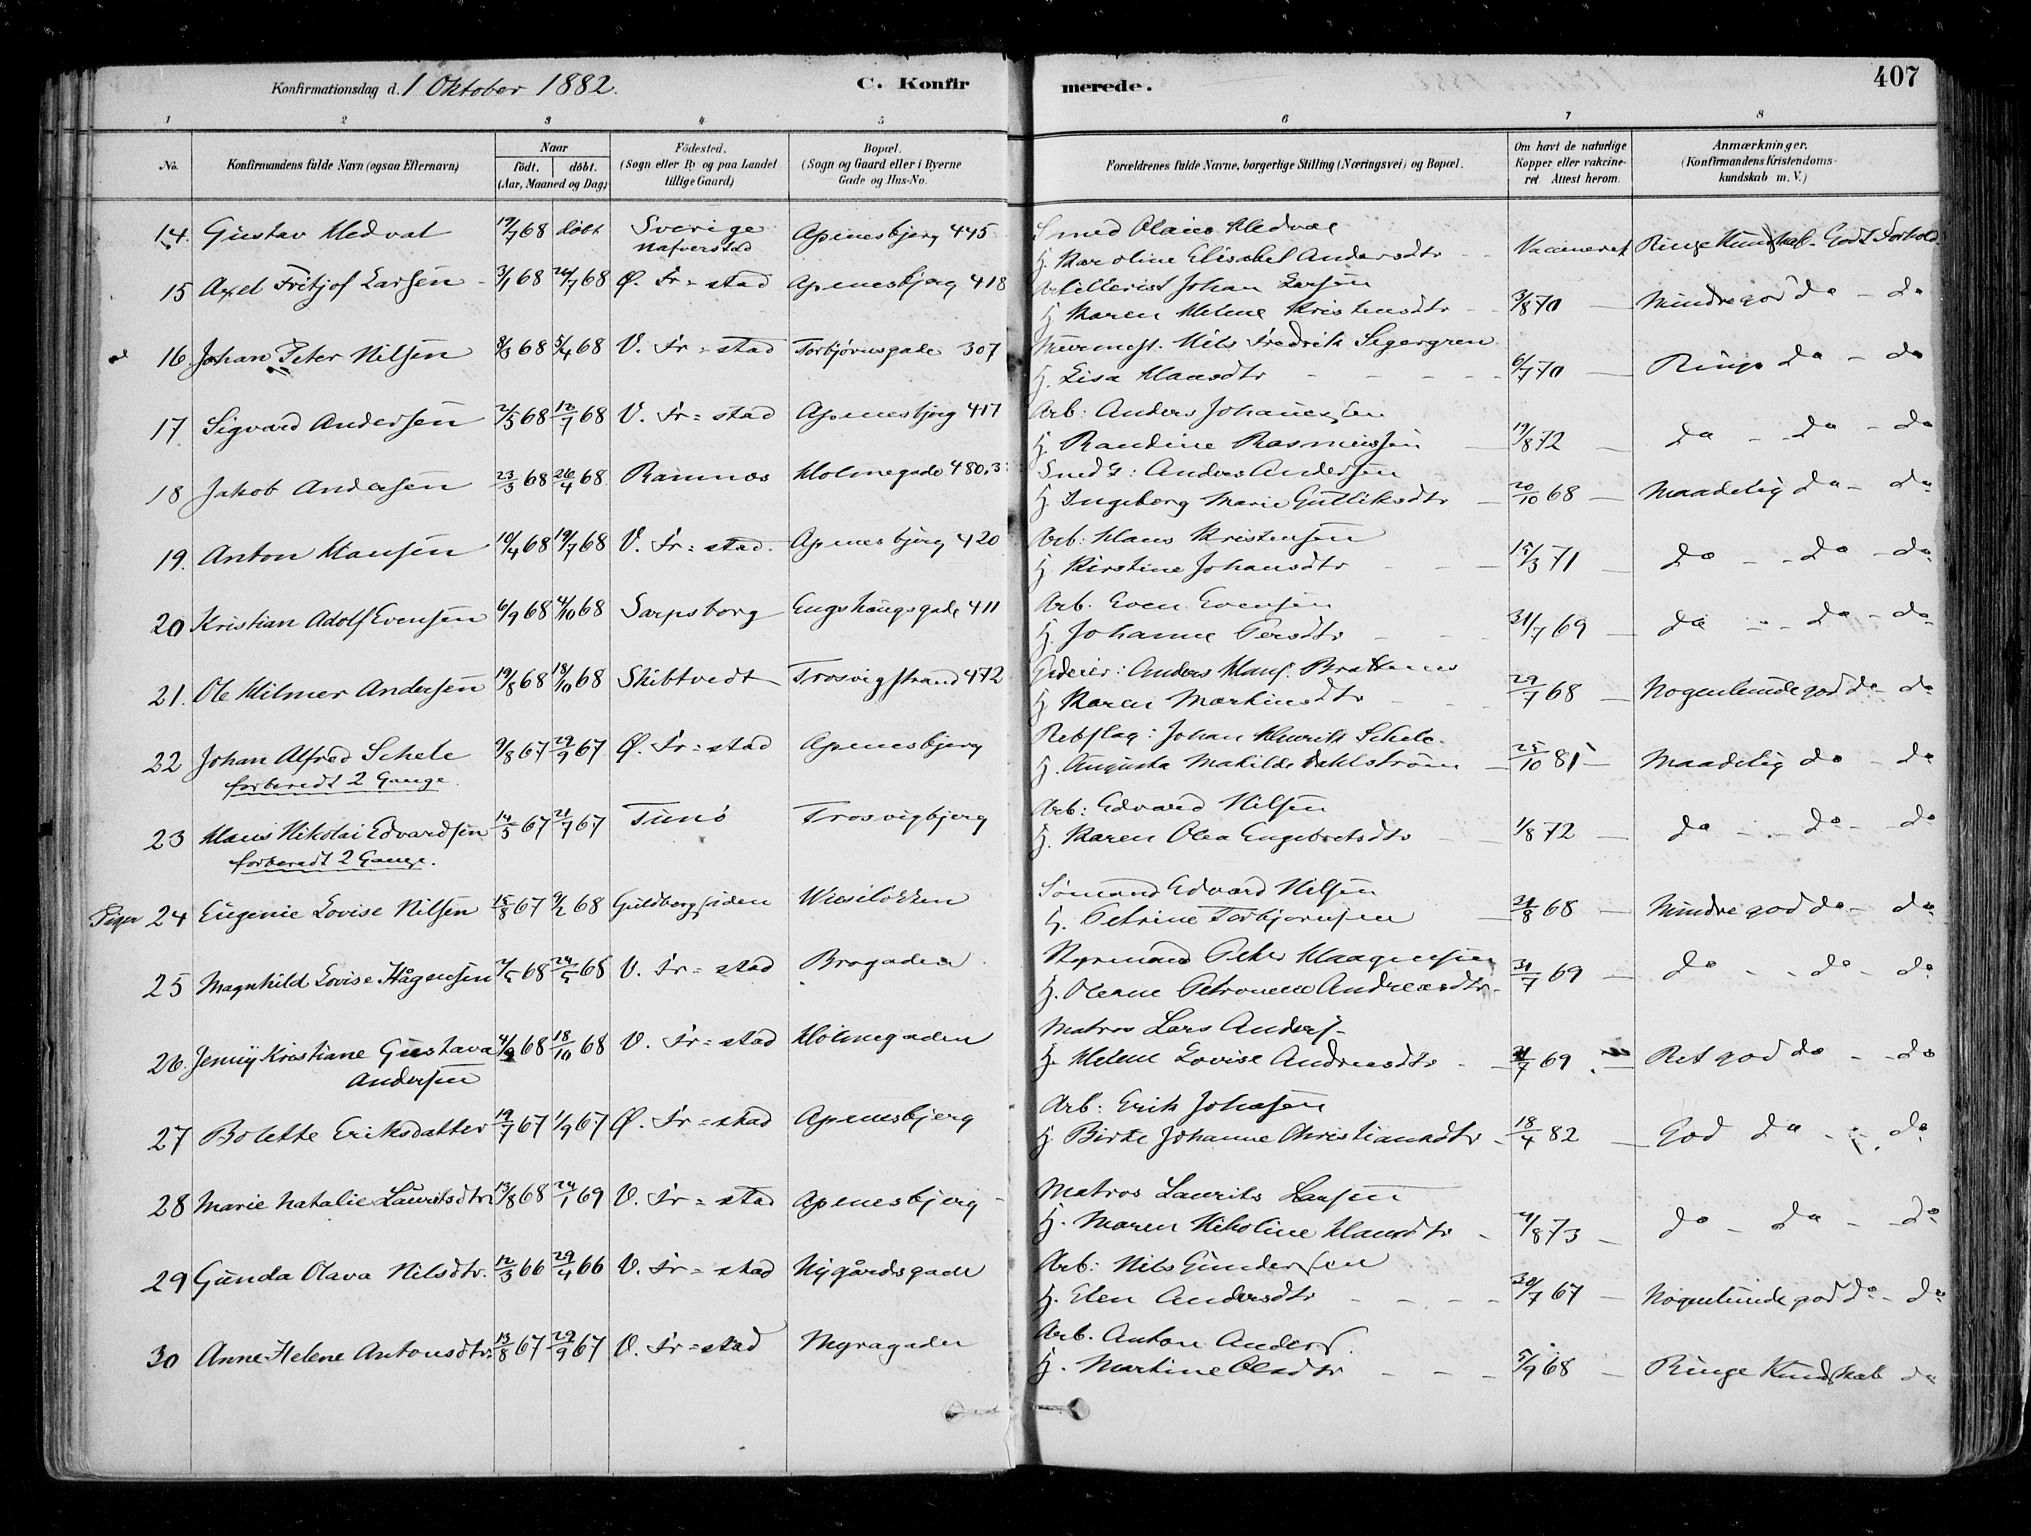 Konfirmationsdag d. 1 Oktober 1882. C. Konfirmerede. 407
1 2 3 4 5 6 7 8
No. Konfirmandens fulde Navn (ogsaa Efternavn) Naar født. døbt. (Aar, Maaned og Dag) Fødested. (Sogn eller By og paa Landet tillige Gaard) Bopæl. (Sogn og Gaard eller i Byerne Gade og Hus-No. Forældrenes fulde Navne, borgerlige Stilling (Næringsvei) og Bopæl. Om havt de naturlige Kopper eller vakcineret Attest herom. Anmærkninger. (Konfirmandens Kristendomskundskab m. V.)
14. Gustav Hedval 19/7 68 døbt Sverige Nafverstad Apenesbjerg 445 Smed Olaus Hedval
H. Karoline Elisabet Andersdtr - Vaccineret Ringe Kundskab - Godt Forhold
15 Axel Fritjof Larsen - 3/1 68 26/7 68 Ø. Fr=stad Apenesbjerg 418 Artillerist Johan Larsen
H. Karen Helene Kristensdtr - 3/8 70 - Mindre god do - do
16. Johan Peter Nilsen 8/3 68 5/4 68 V. Fr=stad Torbjørnsgade 307 Murmest. Nils Fredrik Segergren
H. Lisa Hansdtr - 6/7 70 - Ringe do - do
17. Sigvard Andersen 2/5 68 12/7 68 V. Fr=stad Apenesbjerg 417 Arb: Anders Johannesen
H. Randine Rasmussen - 19/8 72 - do - do - do
18 Jakob Andersen 23/3 68 26/4 68. Ramnæs Holmegade 480.3 Smeds: Anders Andersen
H. Ingeborg Marie Gulliksdtr - 20/10 68 - Maadelig do - do
19. Anton Hansen 10/4 68 19/7 68 V. Fr=stad. Apenesbjerg 420 Arb: Hans Kristensen
H. Kirstine Johansdtr - 15/3 71 - do - do - do
20 Kristian Adolf Evensen 6/9 68 4/10 68 Sarpsborg Enghaugsgade 411 Arb. Even Evensen
H. Johanne Persdtr - 31/7 69 - do - do - do
21. Ole Hilmer Andersen 19/8 68 18/10 68 Skibtvedt Trosvigstrand 472 Anders Hans. Brattenes
H. Karen Martinsdtr - 29/7 68 - Nogenlunde god do - do
22 Johan Alfred Schele 9/8 67 29/9 67. Ø. Fr=stad Apenesbjerg Rebslag: Johan Henrik Schele.
forberedt 2 Gange. H. Augusta Matilde Dahlstrøm - 25/10 81 - Maadelig do - do
23 Hans Nikolai Edvardsen 14/5 67 21/7 67 Tunø Trosvigbjerg Arb: Edvard Nilsen
forberedt 2 Gange. H. Karen Olea Engebretsdtr - 1/8 72 - do - do - do
Piger 24 Eugenie Lovise Nilsen 15/8 67 9/2 68 Guldbergsiden Wiesiløkken Sømand Edvard Nilsen
H. Petrine Torbjørnsen - 21/8 68 - Mindre god do - do
25 Magnhild Lovise Hågensen 7/5 68 24/5 68 V. Fr=stad Brogaden Styrmand Peter Haagensen
H. Oleane Petronelle Andreasdtr - 31/7 69 - do - do - do
26. Jenny Kristiane Gustava 4/9 68 18/10 68 V. Fr=stad Holmegaden Matros Lars Anders.
Andersen H. Helene Lovise Andreasdtr - 7 69 - Ret god do - do
27 Bolette Eriksdatter 19/7 67 1/9 67 Ø. Fr=stad Apenesbjerg Arb: Erik Johasen
H. Birte Johanne Christiansdtr - 18/4 82 - God do - do
28 Marie Natalie Lauritsdtr 13/8 68 24/1 69 V. Fr=stad Apenesbjerg - Matros Laurits Larsen
H. Maren Nikoline Hansdtr - 4/8 73 - do - do - do
29 Gunda Olava Nilsdtr. 12/3 66 29/4 66 V. Fr=stad Nygårdsgade Arb: Nils Gundersen
H. Elen Andersdtr - 30/7 67 - Nogenlunde god do - do
30 Anne Helene Antonsdtr. 13/8 67 29/9 67 V. Fr=stad Nygaden Arb. Anton Anders.
H. Martine Olsdtr - 5/9 68 - Ringe Kundskab do